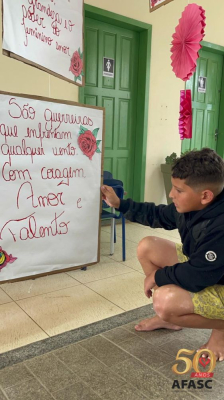 poder do
feminino amor
São guerreiras
que enfrentam
qualquer vento
Com coragem
Amor e
Talento
50
ANOS
AFASC